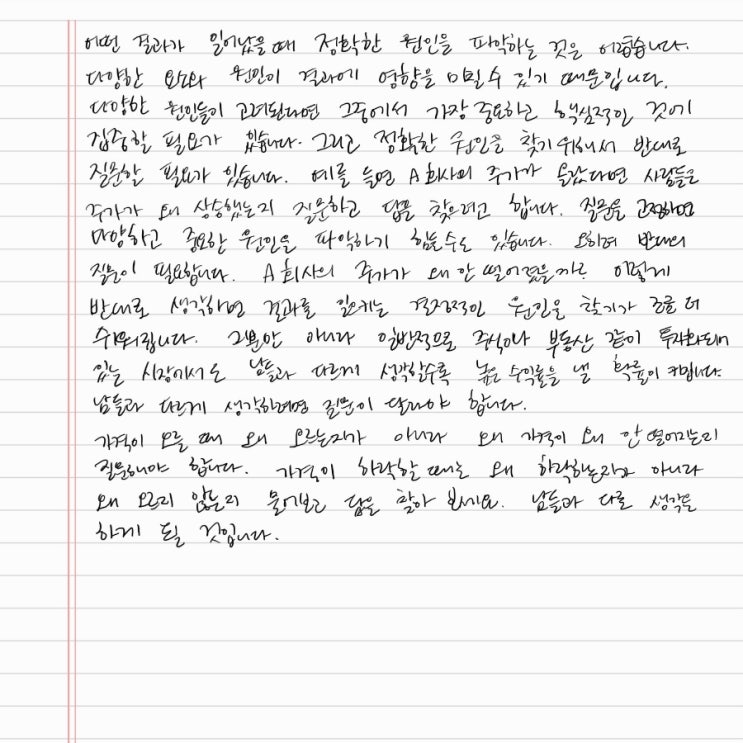 어떤 결과가 일어났을 때 정확한 원인을 파악하는 것은 어렵습니다.
다양한 요소와 원인이 결과에 영향을 미칠 수 있기 때문입니다.
다양한 원인들이 고려된다면 그중에서 가장 중요하고 핵심적인 것에
집중할 필요가 있습니다. 그리고 정확한 원인을 찾기 위해서 반대로
질문할 필요가 있습니다. 예를 들면 A회사의 주가가 올랐다면 사람들은
주가가 왜 상승했는지 질문하고 답을 찾으려고 합니다. 질문을 고정하면
다양하고 중요한 원인을 파악하기 힘들수도 있습니다. 오히려 반대의
질문이 필요합니다. A회사의 주가가 왜 안 떨어졌을까? 이렇게
반대로 생각하면 결과를 일으키는 결정적인 원인을 찾기가 조금 더
쉬워집니다. 그뿐만 아니라 일반적으로 주식이나 부동산 같이 투자화되어
있는 시장에서는 남들과 다르게 생각할수록 높은 수익률을 낼 확률이 커집니다.
남들과 다르게 생각하려면 질문이 달라야 합니다.
가격이 오를 때 왜 오르는지가 아니라 왜 가격이 왜 안 떨어지는지
질문해야 합니다. 가격이 하락할 때는 왜 하락하는지가 아니라
왜 오르지 않는지 물어보고 답을 찾아 보세요. 남들과 다른 생각을
하게 될 것입니다.